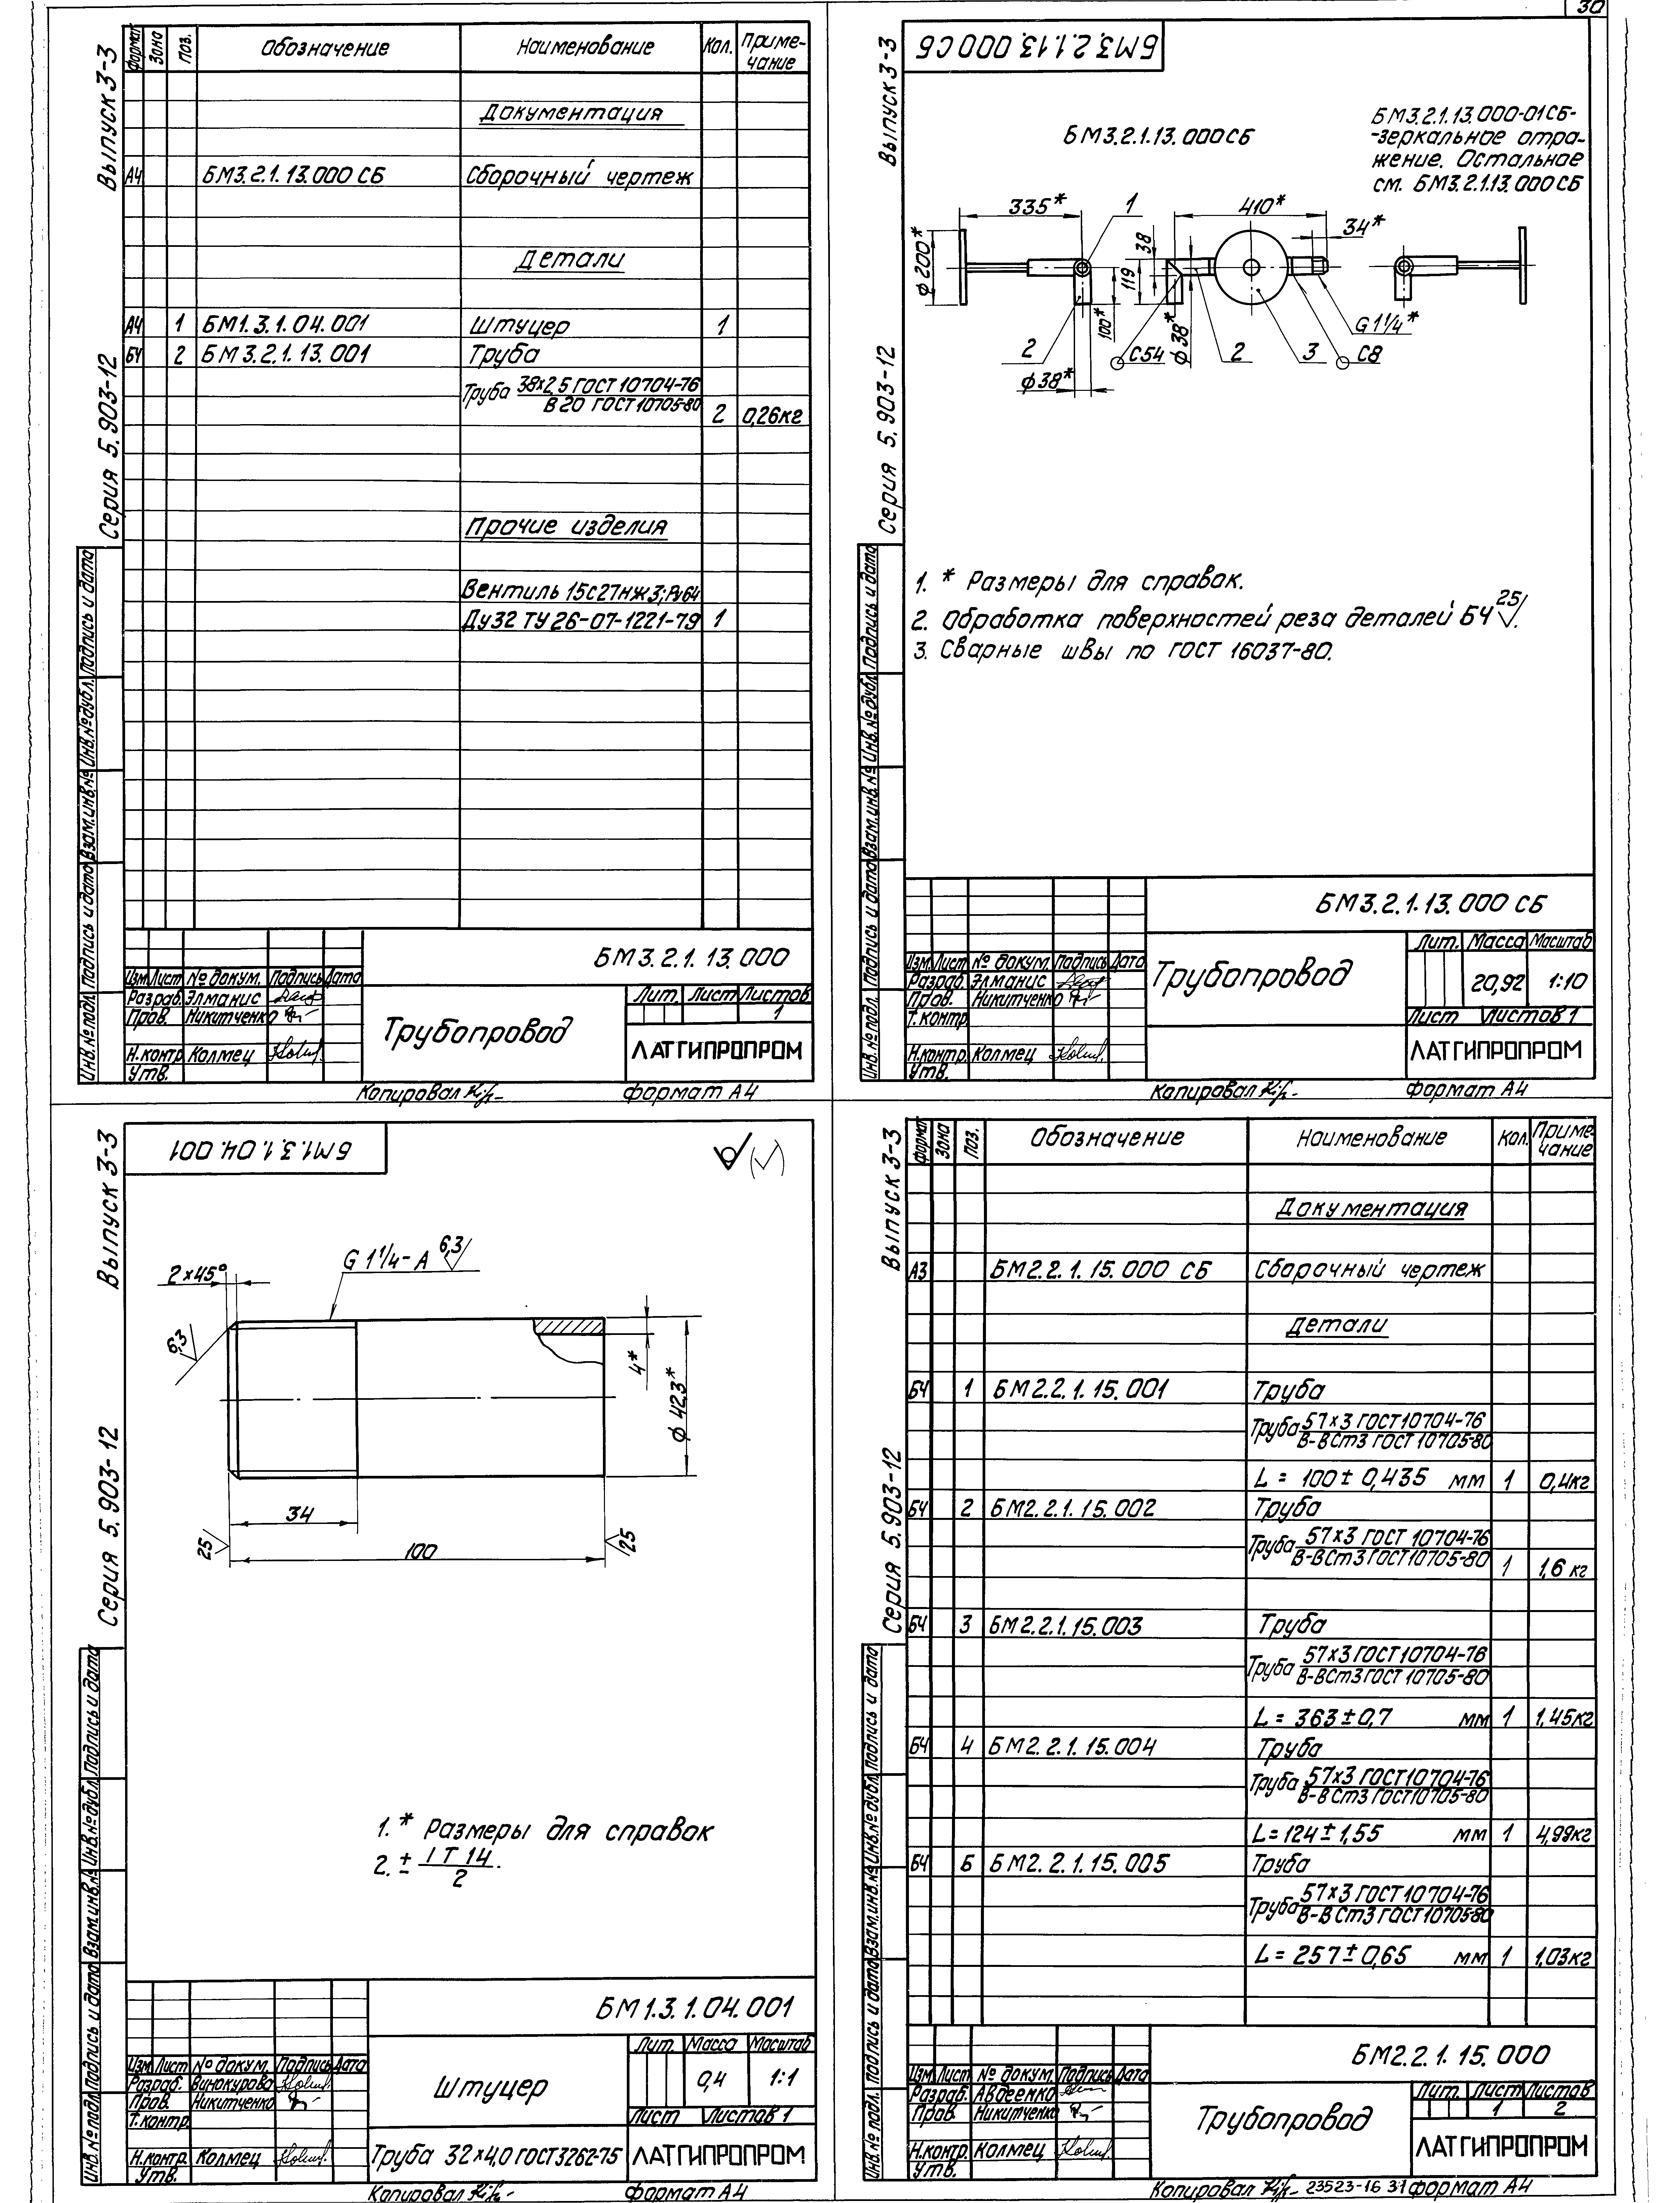 30
Выпуск 3-3
Серия 5.903-12
Формат Зона Поз. Обозначение Наименование Кол. Приме-
чание
Документация
А4 БМ3.2.1.13.000 СБ Сборочный чертеж
Детали
А4 1 БМ1.3.1.04.001 Штуцер 1
БЧ 2 БМ3.2.1.13.001 Труба
Труба 38×2,5 ГОСТ 10704-76
В 20 ГОСТ 10705-80
2 0,26кг
Прочие изделия
Вентиль 15с27нж3; Ру64
Ду32 ТУ 26-07-1221-79 1
Инв.№ подл. Подпись и дата Взам.инв.№ Инв.№ дубл. Подпись и дата
БМ3.2.1.13.000
Изм Лист № докум. Подпись Дата
Разраб. Элманис
Пров. Никитченко
Н.контр. Колмец
Утв.
Трубопровод
Лит. Лист Листов
1
ЛАТГИПРОПРОМ
Копировал
формат А4
Выпуск 3-3
Серия 5.903-12
БМ3.2.1.13.000 СБ
БМ3.2.1.13.000 СБ
БМ3.2.1.13.000-01СБ-
-зеркальное отра-
жение. Остальное
см. БМ3.2.1.13.000 СБ
335* 1 410* 34*
ф200* 38 119 100* ф38* G1¼*
2 С54 2 3 С8
ф38*
1. * Размеры для справок.
2. Обработка поверхностей реза деталей БЧ 25.
3. Сварные швы по ГОСТ 16037-80.
Инв.№ подл. Подпись и дата Взам.инв.№ Инв.№ дубл. Подпись и дата
БМ3.2.1.13.000 СБ
Изм Лист № докум. Подпись Дата
Разраб. Элманис
Пров. Никитченко
Т.контр.
Н.контр. Колмец
Утв.
Трубопровод
Лит. Масса Масштаб
20,92 1:10
Лист Листов 1
ЛАТГИПРОПРОМ
Копировал
формат А4
Выпуск 3-3
Серия 5.903-12
БМ1.3.1.04.001
2×45° G 1¼-А 6,3
6,3
4*
ф 42,3*
34
25 100 25
1. * Размеры для справок
2. ± IT 14
2
Инв.№ подл. Подпись и дата Взам.инв.№ Инв.№ дубл. Подпись и дата
БМ1.3.1.04.001
Изм Лист № докум. Подпись Дата
Разраб. Винокурова
Пров. Никитченко
Т.контр.
Н.контр. Колмец
Утв.
Штуцер
Лит. Масса Масштаб
0,4 1:1
Лист Листов 1
Труба 32×4,0 ГОСТ 3262-75
ЛАТГИПРОПРОМ
Копировал
формат А4
Выпуск 3-3
Серия 5.903-12
Формат Зона Поз. Обозначение Наименование Кол. Приме-
чание
Документация
А3 БМ2.2.1.15.000 СБ Сборочный чертеж
Детали
БЧ 1 БМ2.2.1.15.001 Труба
Труба 57×3 ГОСТ 10704-76
В-ВСт3 ГОСТ 10705-80
L = 100 ± 0,435 мм 1 0,4кг
БЧ 2 БМ2.2.1.15.002 Труба
Труба 57×3 ГОСТ 10704-76
В-ВСт3 ГОСТ 10705-80
1 1,6 кг
БЧ 3 БМ2.2.1.15.003 Труба
Труба 57×3 ГОСТ 10704-76
В-ВСт3 ГОСТ 10705-80
L = 363 ± 0,7 мм 1 1,45кг
БЧ 4 БМ2.2.1.15.004 Труба
Труба 57×3 ГОСТ 10704-76
В-ВСт3 ГОСТ 10705-80
L = 124 ± 1,55 мм 1 4,99кг
БЧ 5 БМ2.2.1.15.005 Труба
Труба 57×3 ГОСТ 10704-76
В-ВСт3 ГОСТ 10705-80
L = 257 ± 0,65 мм 1 1,03кг
Инв.№ подл. Подпись и дата Взам.инв.№ Инв.№ дубл. Подпись и дата
БМ2.2.1.15.000
Изм Лист № докум. Подпись Дата
Разраб. Авдеенко
Пров. Никитченко
Н.контр. Колмец
Утв.
Трубопровод
Лит. Лист Листов
1 2
ЛАТГИПРОПРОМ
Копировал
23523-16 31
формат А4